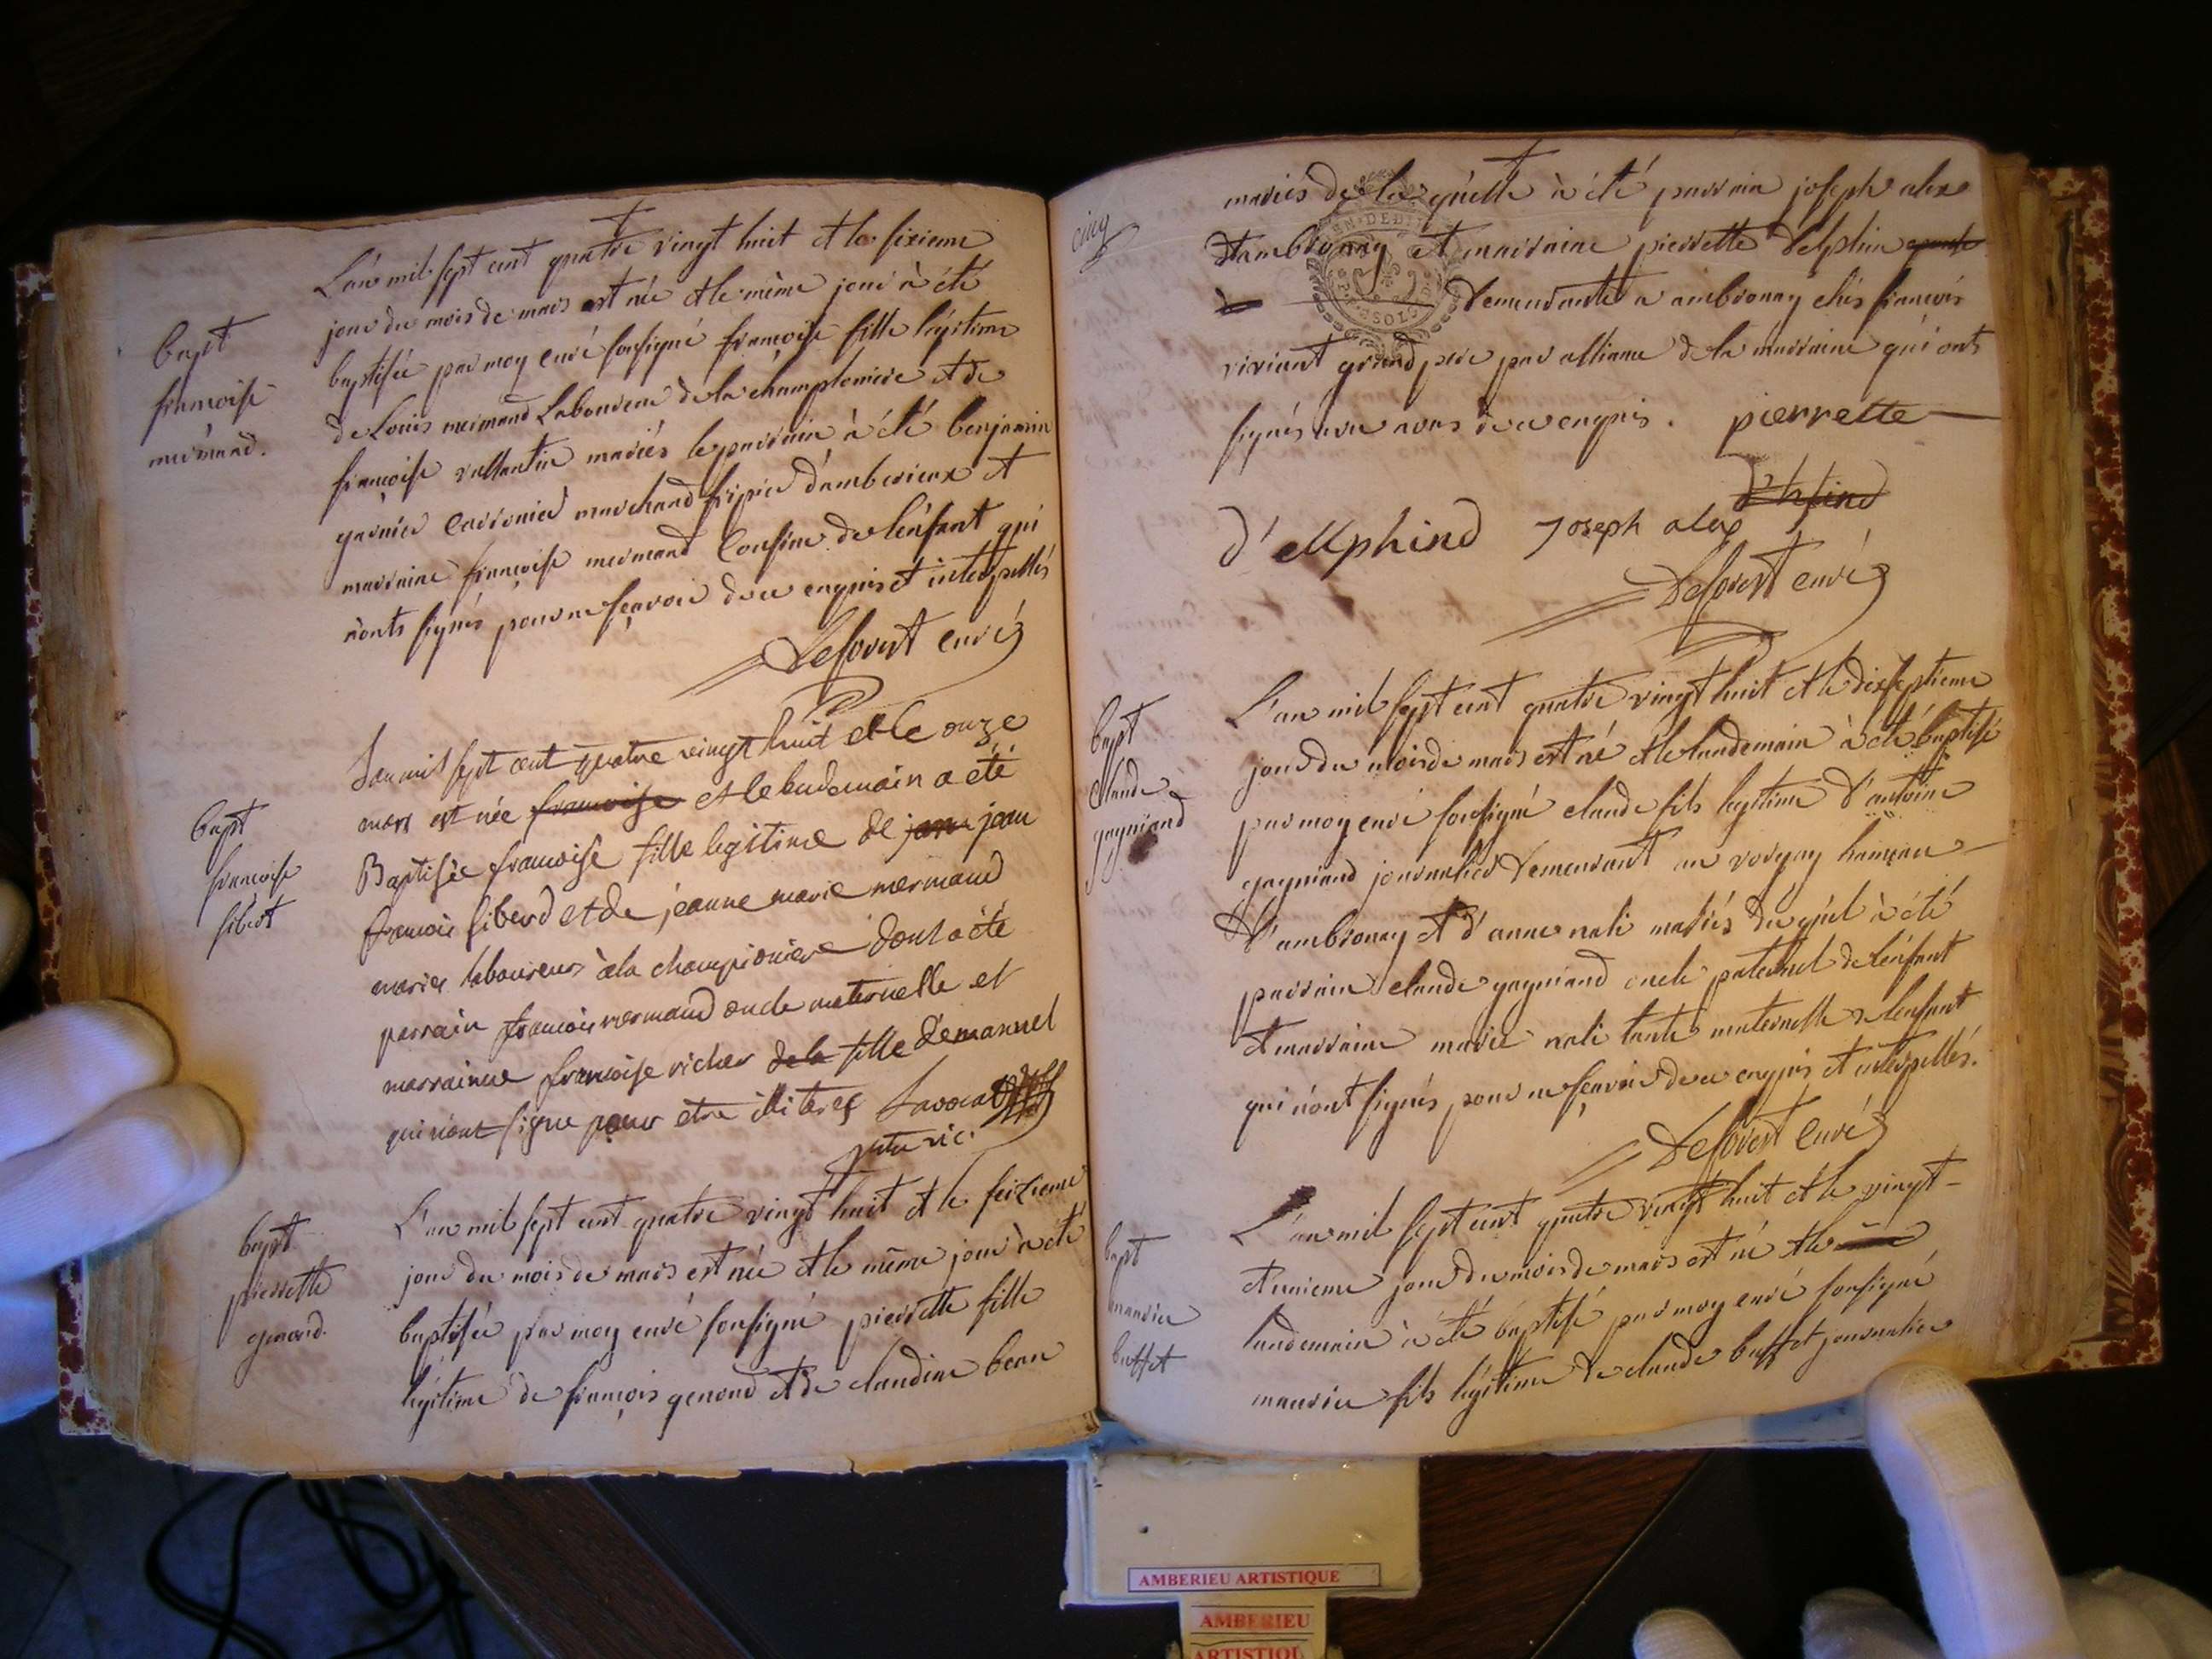 bapt
francoise
mermand.
L'an mil sept cent quatre vingt huit et le sixieme
jour du mois de mars est née et le même jour à été
baptisée par moy curé soussigné françoise fille légitime
de Louis mermand Laboureur de la championiere et de
françoise vallantin mariés le parrain à été benjamin
garnier cavronier marchand fripier d'amberieux et
marraine françoise mermand Cousine de l'enfant qui
n'onts signés pour ne sçavoir de ce enquis et interpellés
Deforest curé
bapt
francoise
sibert
L'an mil sept cent quatre vingt huit et le onze
mars est née francoise et le lendemain a été
Baptisée francoise fille legitime de jean
francois siberd et de jeanne marie mermand
mariés laboureurs à la championiere dont a été
parrain francois mermand oncle maternelle et
marrainne francoise richer de la fille d'emanuel
qui n'ont signe pour etre illiteres Savoca
bapt
pierrette
genoud.
L'an mil sept cent quatre vingt huit et le seizieme
jour du mois de mars est née et le même jour à été
baptisée par moy curé soussigné pierrette fille
légitime de françois genoud et de claudine beau
cinq
mariés de la quelle à été parrain joseph alex
d'ambronay et marraine pierrette delphin
demeurante a ambronay chés francois
vivient grand pere par alliance de la marraine qui onts
signés avec nous de ce enquis. pierrette
d'ellphind Joseph alex
Deforest curé
bapt
claude
gagniand
L'an mil sept cent quatre vingt huit et le dixseptieme
jour du mois de mars est né et le landemain à été baptisé
par moy curé soussigné claude fils legitime d'antoine
gagniand journalier demeurant au vorgey hameau
d'ambronay et d'anne nali mariés du quel à été
parrain claude gagniand oncle paternel de l'enfant
et marraine marie nali tante maternelle de l'enfant
qui n'ont signés pour ne sçavoir de ce enquis et interpellés.
Deforest Curé
bapt
maurice
buffet
L'an mil sept cent quatre vingt huit et le vingt-
et unieme jour du mois de mars est né et le
landemain à été baptisé par moy curé soussigné
maurice fils légitime de claude buffet journalier
AMBERIEU ARTISTIQUE
AMBERIEU
ARTISTIQU